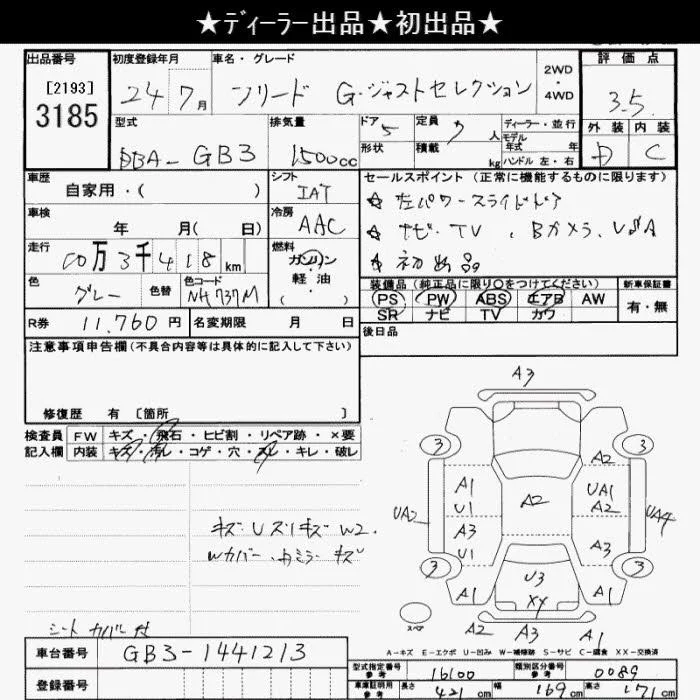 ★ディーラー出品★初出品★
出品番号 初度登録年月 車名・グレード 2WD・4WD 評価点
[2193]
3185
24 7月 フリード G・ジャストセレクション 3.5
型式 排気量 ドア 5 定員 7人 ディーラー・並行 外装 内装
DBA-GB3 1500cc 形状 積載 kg モデル年式 年 D C
ハンドル 左・右
車歴 シフト セールスポイント (正常に機能するものに限ります)
自家用・( ) IAT ☆ 左パワースライドドア
車検 冷房 ☆ ナビ・TV、Bカメラ、VSA
年 月( 日) AAC ☆ 初出品
走行 燃料
00万3千418km ガソリン
軽油
・( )
色 色替 色コード
グレー NH737M
装備品 (純正品に限り○をつけてください) 新車保証書
PS PW ABS エアB AW 有・無
SR ナビ TV カワ
R券 11,760円 名変期限 月 日
後日品
注意事項申告欄(不具合内容等は具体的に記入して下さい)
修復歴 有 〔箇所 〕
検査員 FW キズ・飛石・ヒビ割・リペア跡・×要
記入欄 内装 キズ・汚レ・コゲ・穴・スレ・キレ・破レ
A3
3 3
A2
A1 UA1
U1 A2 A2
UA2 UA4
A3 A3
U1
3 3
U3
A1 XX A1
A2 A3 A1
スペア
キズ Uズリキズ W2
Wカバー、
ミラーキズ
シートカバー付
A-キズ E-エクボ U-凹み W-補修跡 S-サビ C-腐食 XX-交換済
車台番号 GB3-1441213
登録番号
型式指定番号 参考 16100 類別区分番号 参考 0089
車庫証明用 参考 長さ 421cm 幅 169cm 高さ 171cm